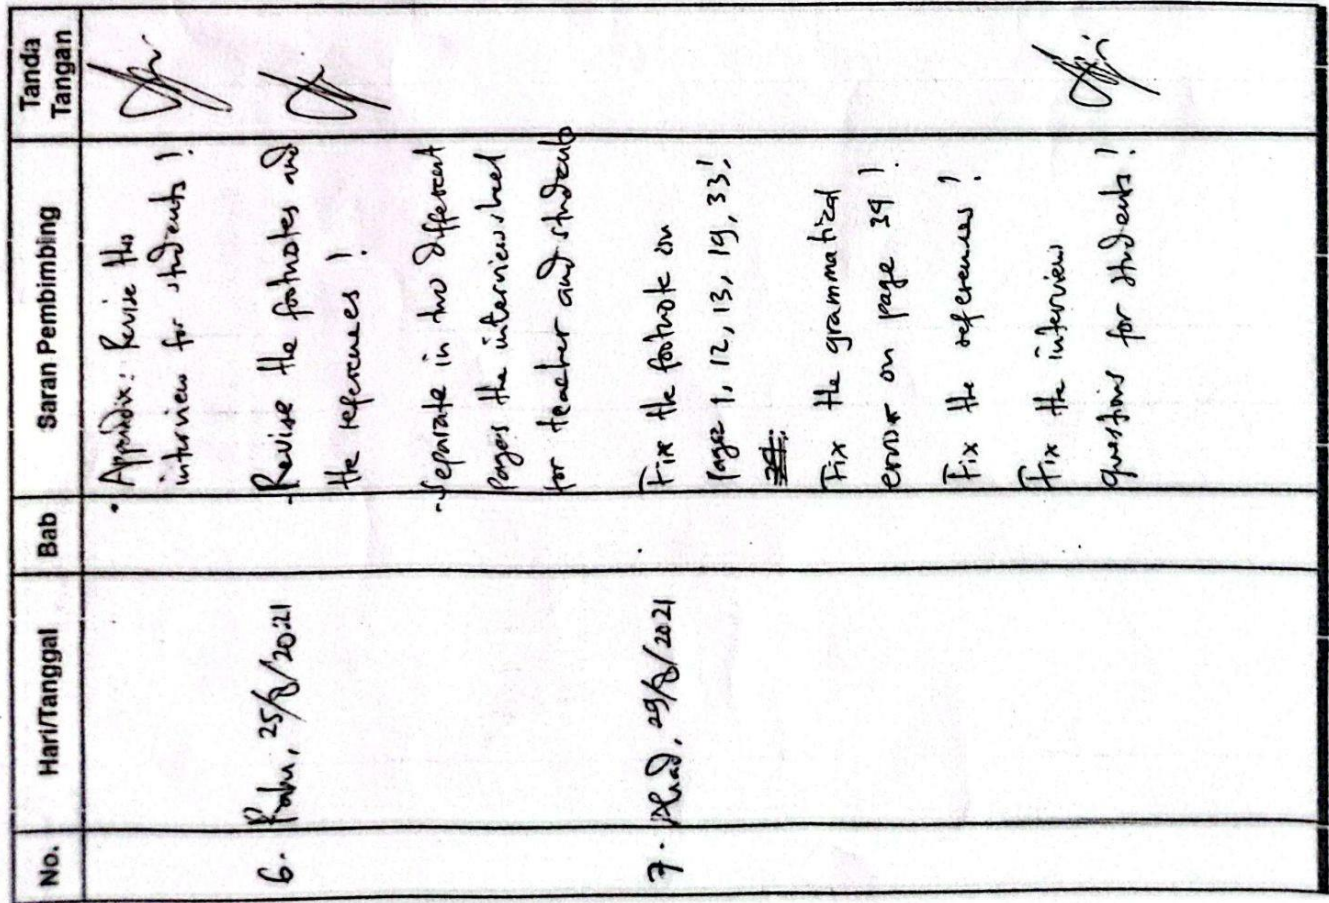 No. Hari/Tanggal Bab Saran Pembimbing Tanda Tangan
• Appendix: Revise the
interview for students!
6. Rabu, 25/8/2021 - Revise the footnotes and
the references!
- Separate in two different
pages the interview sheet
for teacher and students
7. Ahad, 29/8/2021 Fix the footnote on
page 1, 12, 13, 19, 33!
Fix the gramatical
error on page 34!
Fix the references!
Fix the interview
questions for students!